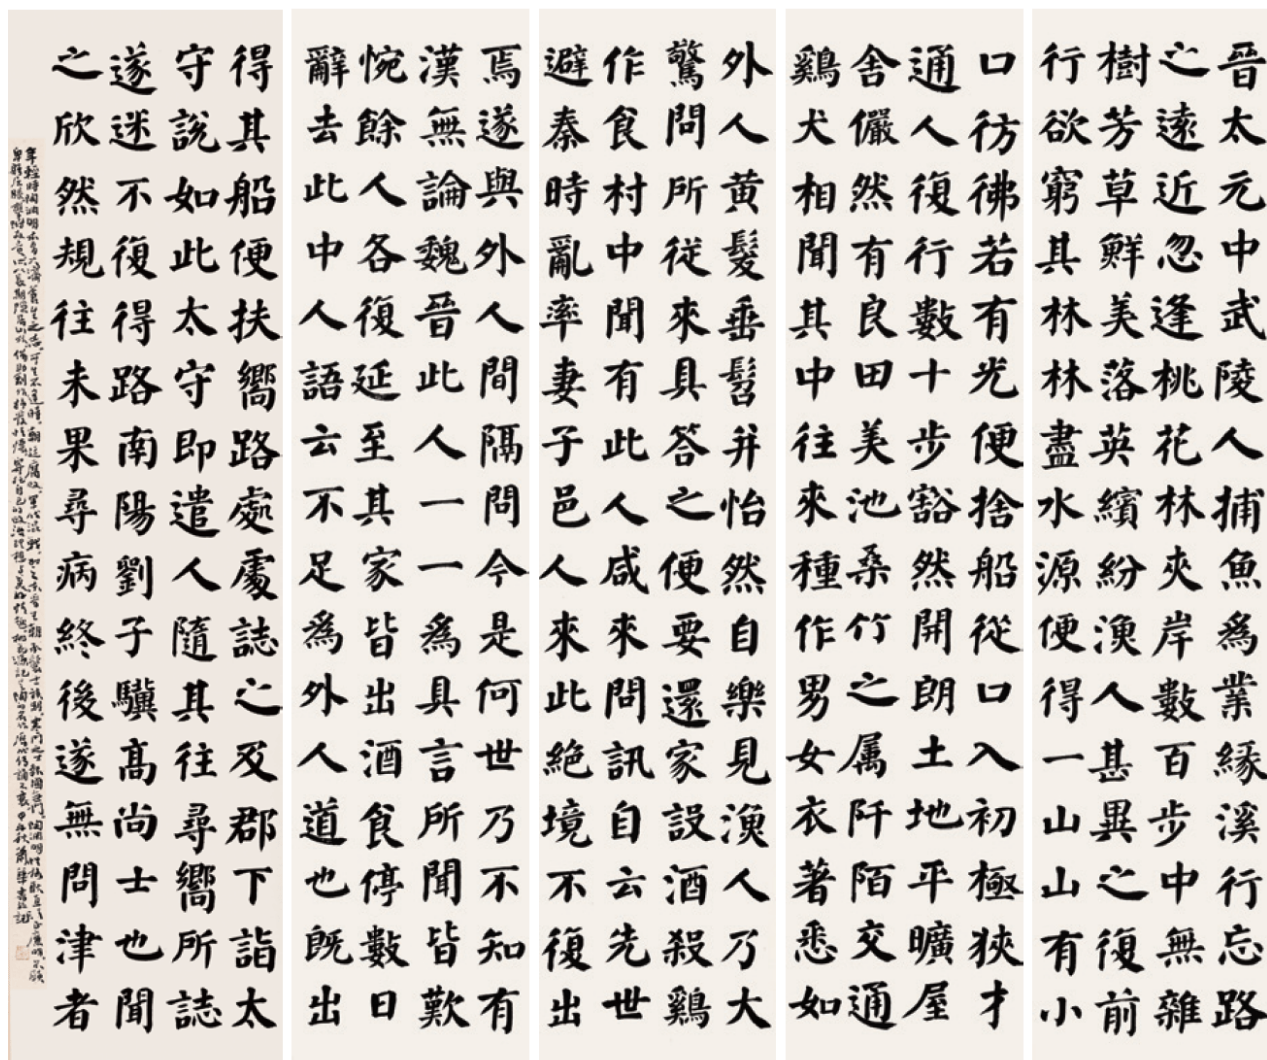 晉太元中武陵人捕魚爲業緣溪行忘路
之遠近忽逢桃花林夾岸數百步中無雜
樹芳草鮮美落英繽紛漁人甚異之復前
行欲窮其林林盡水源便得一山山有小
口彷彿若有光便捨船從口入初極狹才
通人復行數十步豁然開朗土地平曠屋
舍儼然有良田美池桑竹之属阡陌交通
鷄犬相聞其中往來種作男女衣著悉如
外人黄髮垂髫并怡然自樂見漁人乃大
驚問所從來具答之便要還家設酒殺鷄
作食村中聞有此人咸來問訊自云先世
避秦時亂率妻子邑人來此絕境不復出
焉遂與外人間隔問今是何世乃不知有
漢無論魏晉此人一一爲具言所聞皆歎
惋餘人各復延至其家皆出酒食停數日
辭去此中人語云不足爲外人道也既出
得其船便扶嚮路處處誌之及郡下詣太
守說如此太守即遣人隨其往尋嚮所誌
遂迷不復得路南陽劉子驥高尚士也聞
之欣然規往未果尋病終後遂無問津者